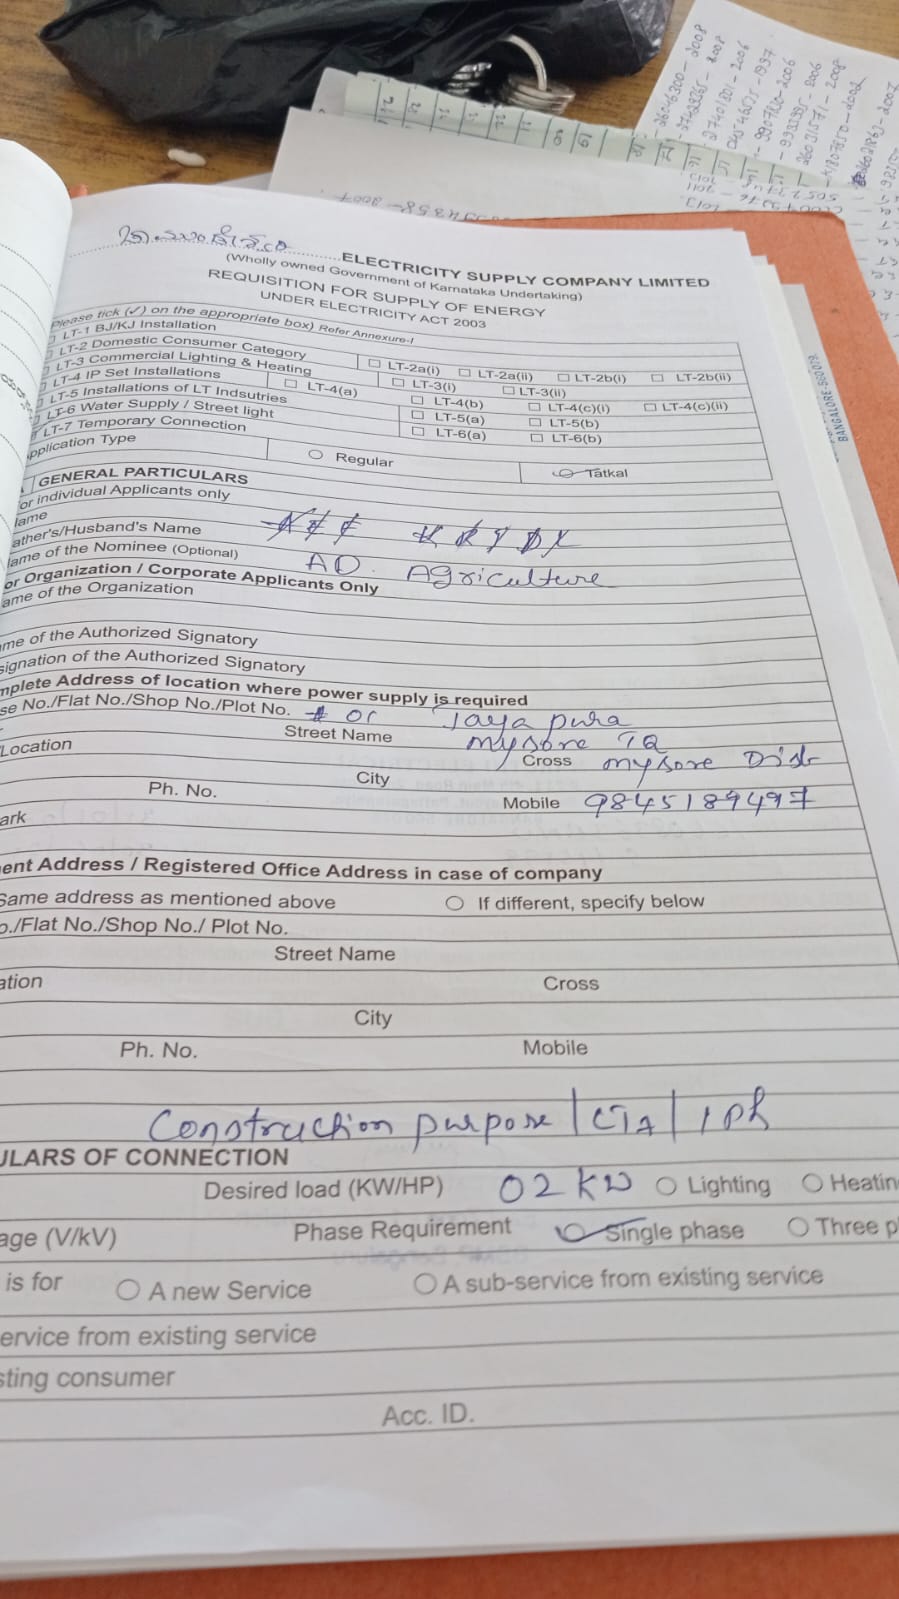 ELECTRICITY SUPPLY COMPANY LIMITED
(Wholly owned Government of Karnataka Undertaking)
REQUISITION FOR SUPPLY OF ENERGY
UNDER ELECTRICITY ACT 2003
Please tick (✓) on the appropriate box) Refer Annexure-I
LT-1 BJ/KJ Installation
LT-2 Domestic Consumer Category ☐ LT-2a(i) ☐ LT-2a(ii) ☐ LT-2b(i) ☐ LT-2b(ii)
LT-3 Commercial Lighting & Heating ☐ LT-3(i) ☐ LT-3(ii)
LT-4 IP Set Installations ☐ LT-4(a) ☐ LT-4(b) ☐ LT-4(c)(i) ☐ LT-4(c)(ii)
LT-5 Installations of LT Indsutries ☐ LT-5(a) ☐ LT-5(b)
LT-6 Water Supply / Street light ☐ LT-6(a) ☐ LT-6(b)
LT-7 Temporary Connection
pplication Type Regular Tatkal
GENERAL PARTICULARS
or individual Applicants only
lame
ather's/Husband's Name
ame of the Nominee (Optional) AD. Agriculture
or Organization / Corporate Applicants Only
ame of the Organization
me of the Authorized Signatory
signation of the Authorized Signatory
mplete Address of location where power supply is required
se No./Flat No./Shop No./Plot No. Jayapura
Street Name mysore TQ
Location Cross mysore Dist
City
Ph. No. Mobile 9845189497
ark
ent Address / Registered Office Address in case of company
Same address as mentioned above If different, specify below
o./Flat No./Shop No./ Plot No.
Street Name
ation Cross
City
Ph. No. Mobile
Construction purpose
ULARS OF CONNECTION
Desired load (KW/HP) 02 KW Lighting Heatin
age (V/kV) Phase Requirement Single phase Three p
is for A new Service A sub-service from existing service
ervice from existing service
sting consumer
Acc. ID.